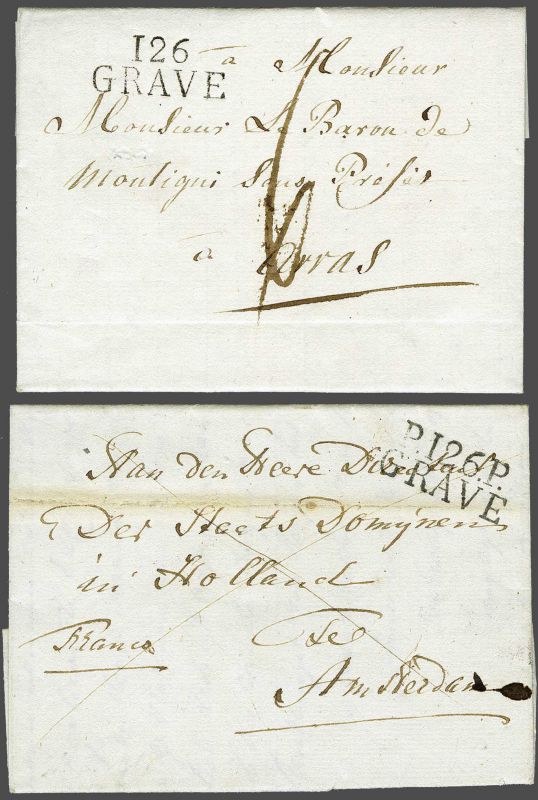 126
GRAVE
à Monsieur
Monsieur Le Baron de
Montigni Sous Préfet
à Arras
6
P.126P.
GRAVE
Aan den Heere Directeur
Der Staats Domijnen
in Holland
Franco
Te
Amsterdam